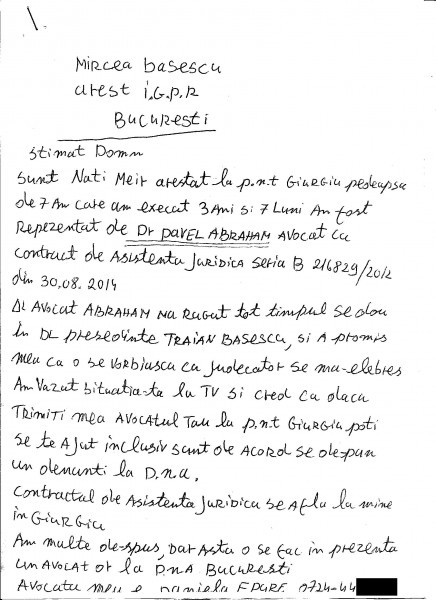 1.
Mircea basescu
arest i.G.P.R
Bucuresti
stimat Domn
sunt Nati Meir arestat la p.n.t Giurgiu pedeapsa
de 7 An care am execat 3 Ani si 7 Luni Am fost
Reprezentat de Dr PAVEL ABRAHAM AVOCAT cu
contract de Asistenta Juridica seria B 216829/2012
din 30.08.2014
DL AVOCAT ABRAHAM Ma Rugat tot timpul se dau
in DL presedinte TRAIAN BASESCU, si A promis
meu ca o se vorbiasca cu judecator se ma-elebres
Am Vazut situatia-ta la TV si cred ca daca
TRimiti mea AVOCATUL TAU la p.n.t Giurgiu poti
se te AJut inclusiv sunt de Acord se de-pun
un denunti la D.n.a.
contractul de Asistenta Juridica se Afla la mine
in Giurgiu
Am multe de-spus, dar Asta o se fac in prezenta
un Avocat or la D.n.A Bucuresti
AVOCATU meu e Daniela 0724-44